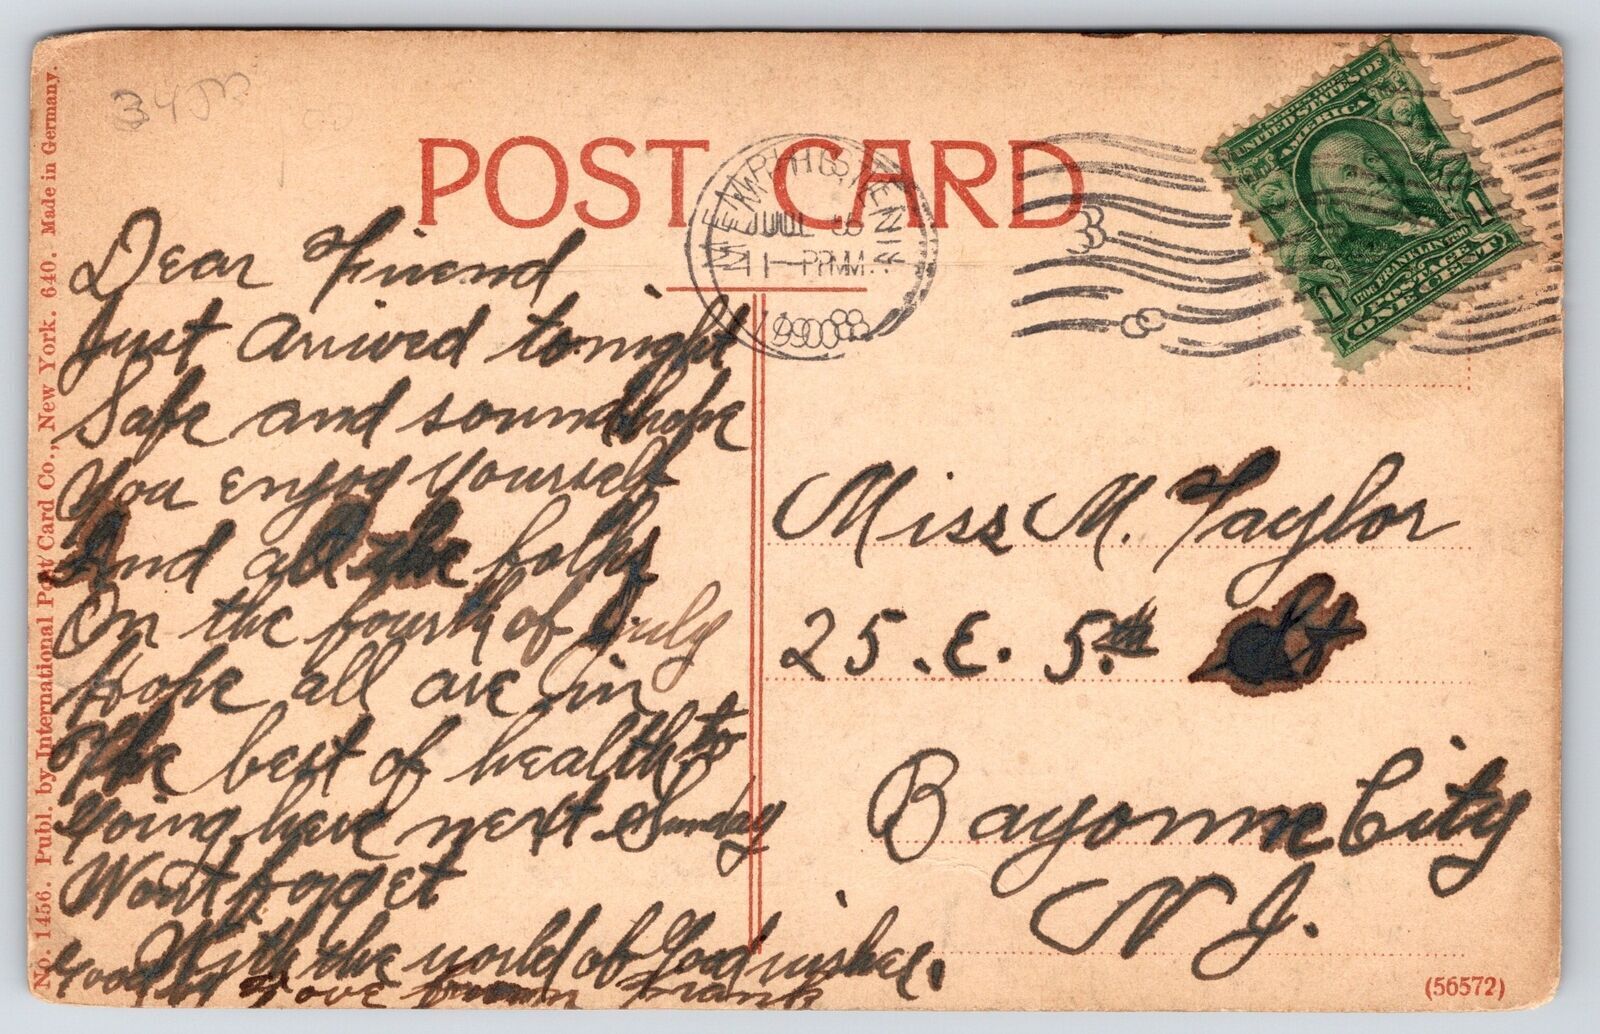 POST CARD
No. 1456. Publ. by International Post Card Co., New York. 640. Made in Germany.
MEMPHIS, TENN.
JUL
11-PM
UNITED STATES OF
AMERICA
1 1
FRANKLIN
POSTAGE
ONE CENT
Dear Friend
Just arrived tonight
Safe and sound hope
You enjoy yourself
And all the folks
On the fourth of July
Hope all are in
The best of health to
Going here next Sunday
Wont forget
With the world of Good wishes.
Good by Love from Frank
Miss M. Taylor
25. E. 5.th St
Bayonne City
N J.
(56572)